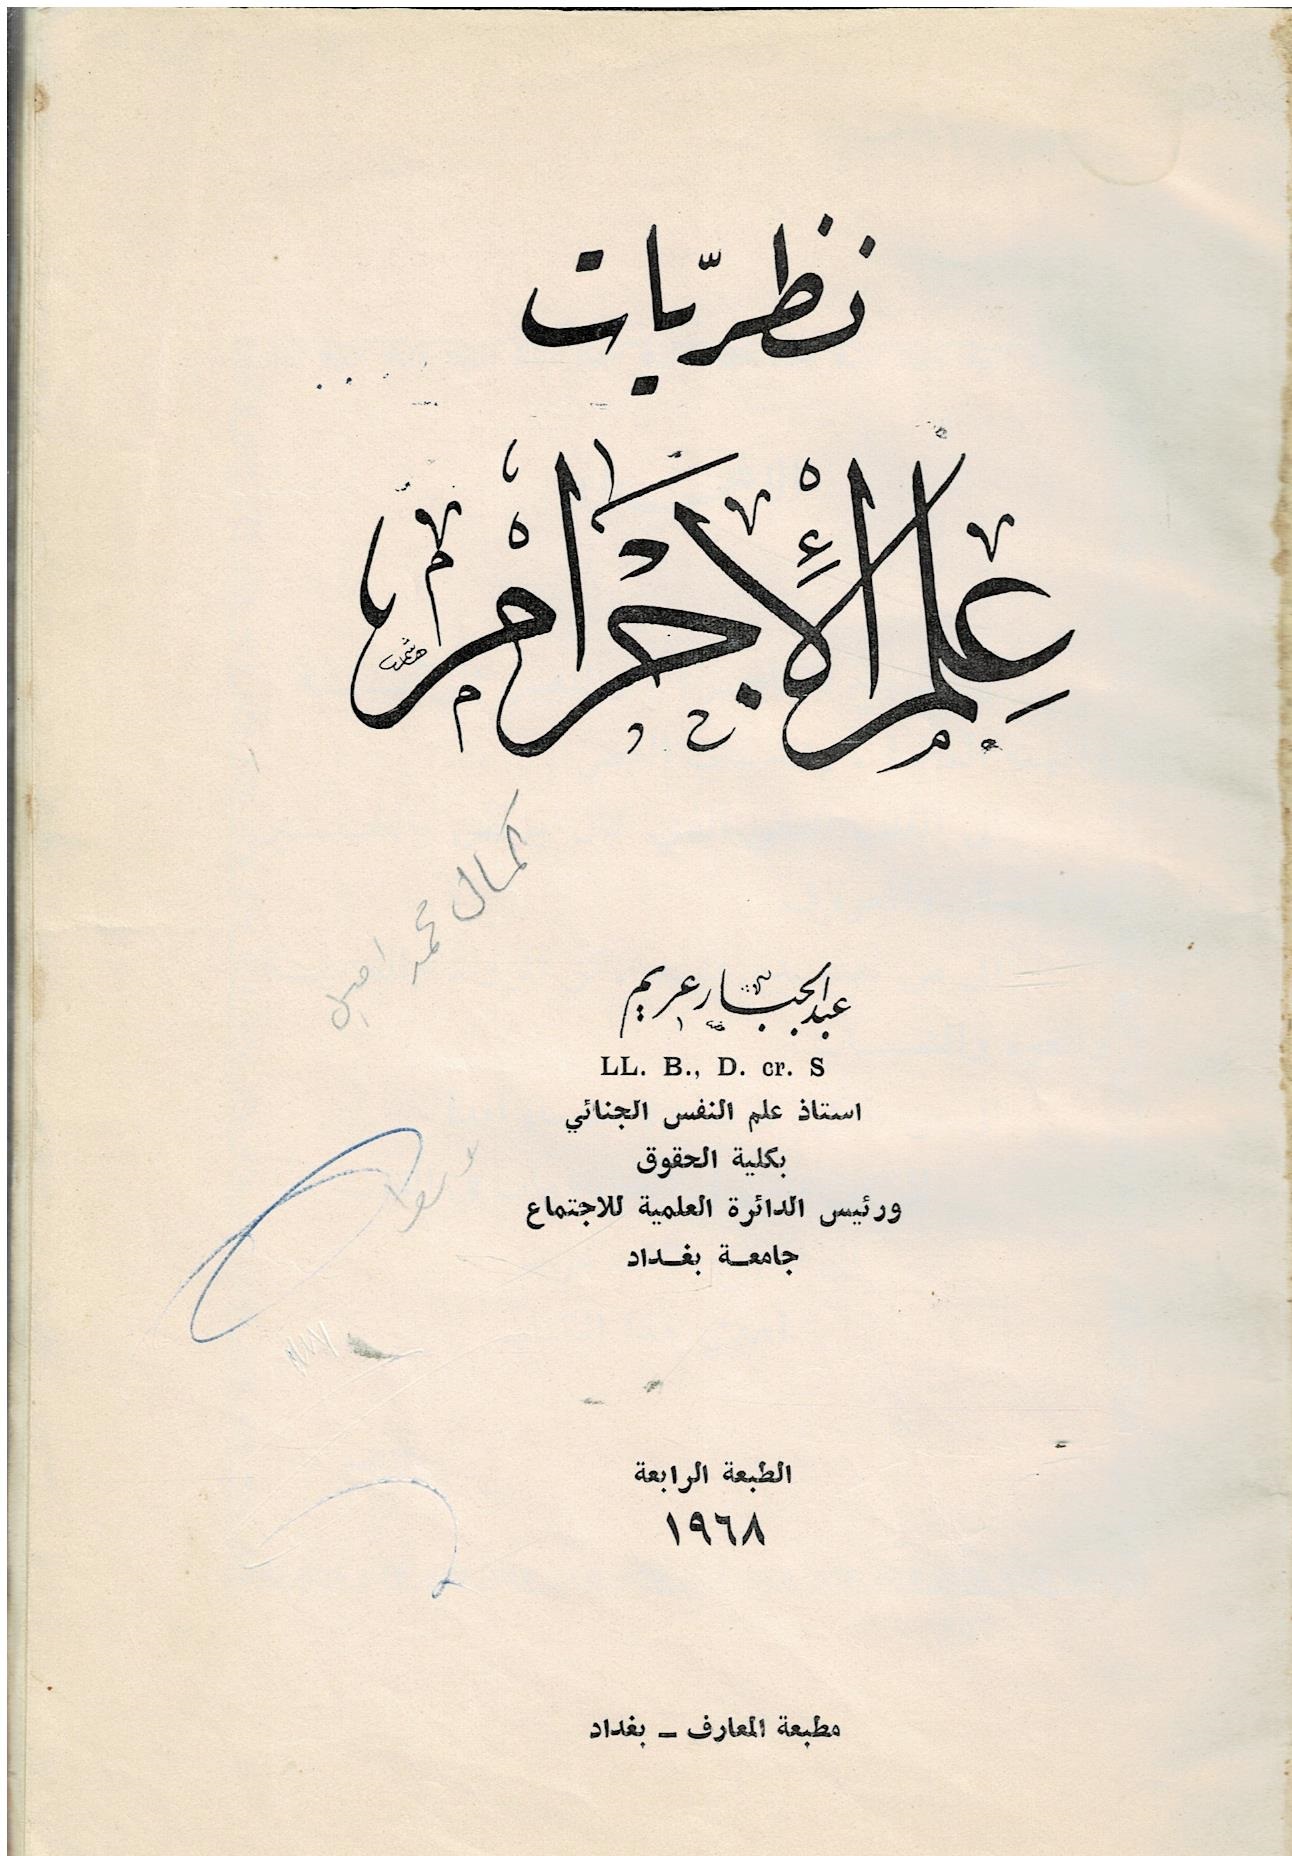 نظريّات
عِلم الإجرَام
هاشم
كمال محمد امين
عبد الجبار عريم
LL. B., D. cr. S
استاذ علم النفس الجنائي
بكلية الحقوق
ورئيس الدائرة العلمية للاجتماع
جامعـة بغـداد
الطبعة الرابعة
١٩٦٨
مطبعة المعارف ــ بغداد